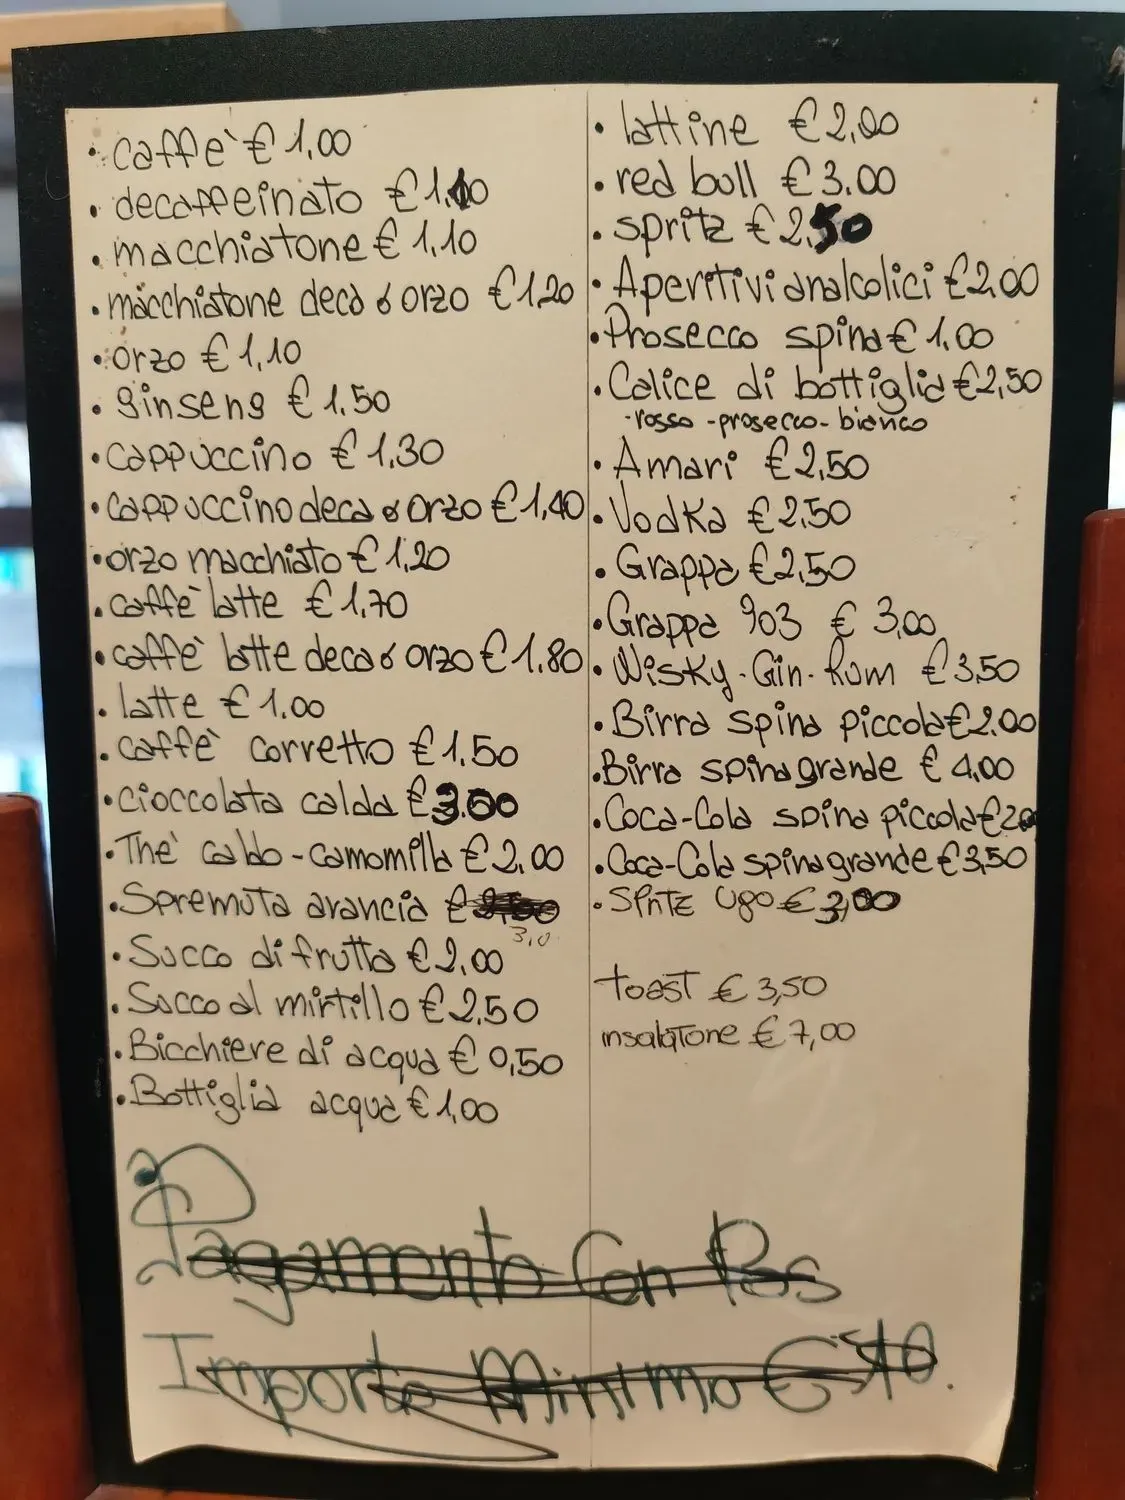 • caffè € 1,00
• decaffeinato € 1,10
• macchiatone € 1,10
• macchiatone deca o orzo € 1,20
• orzo € 1,10
• ginseng € 1,50
• cappuccino € 1,30
• cappuccino deca o orzo € 1,40
• orzo macchiato € 1,20
• caffè latte € 1,70
• caffè latte deca o orzo € 1,80
• latte € 1,00
• caffè corretto € 1,50
• cioccolata calda € 3.00
• The' caldo - camomilla € 2,00
• Spremuta arancia €
3,0
• Succo di frutta € 2,00
• Succo al mirtillo € 2,50
• Bicchiere di acqua € 0,50
• Bottiglia acqua € 1,00
• lattine € 2,00
• red bull € 3.00
• spritz € 2,50
• Aperitivi analcolici € 2,00
• Prosecco spina € 1,00
• Calice di bottiglia € 2,50
-rosso -prosecco- bianco
• Amari € 2,50
• Vodka € 2,50
• Grappa € 2,50
• Grappa 903 € 3,00
• Wisky - Gin - Rum € 3,50
• Birra spina piccola € 2.00
• Birra spina grande € 4,00
• Coca-Cola spina piccola €
• Coca-Cola spina grande € 3,50
• Spritz Ugo € 3,00
toast € 3,50
insalatone € 7,00
Pagamento Con Pos
Importo Minimo € 10.